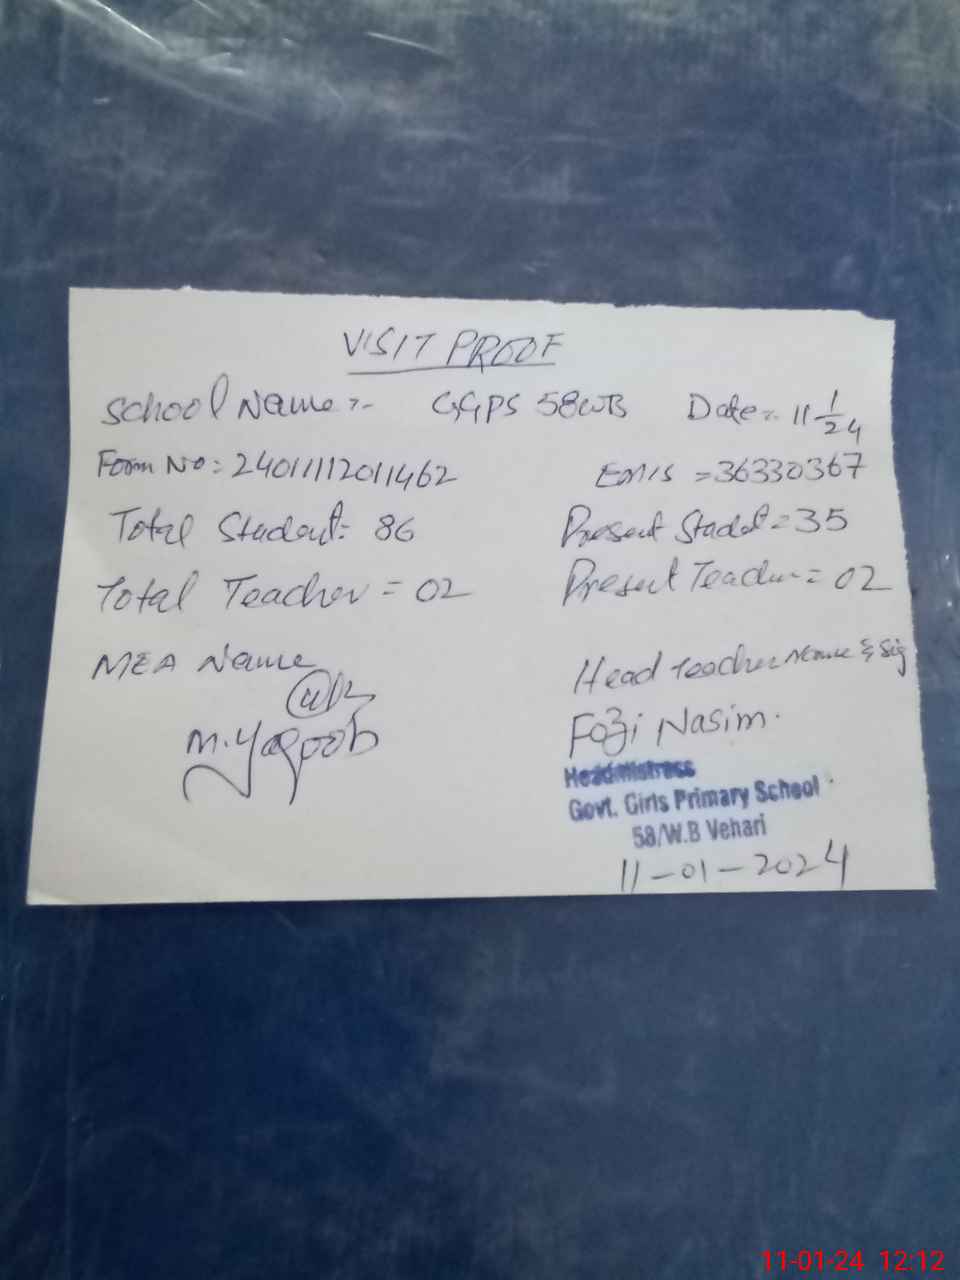 VISIT PROOF
School Name :- GGPS 58WB Date:- 11 1/24
Form No: 24011112011462 EMIS = 36330367
Total Student: 86 Present Stadet = 35
Total Teacher = 02 Present Teacher = 02
MEA Name Head teacher Name & Sig
M. Yaqoob Fozi Nasim.
Headmistress
Govt. Girls Primary School
58/W.B Vehari
11-01-2024
11-01-24 12:12